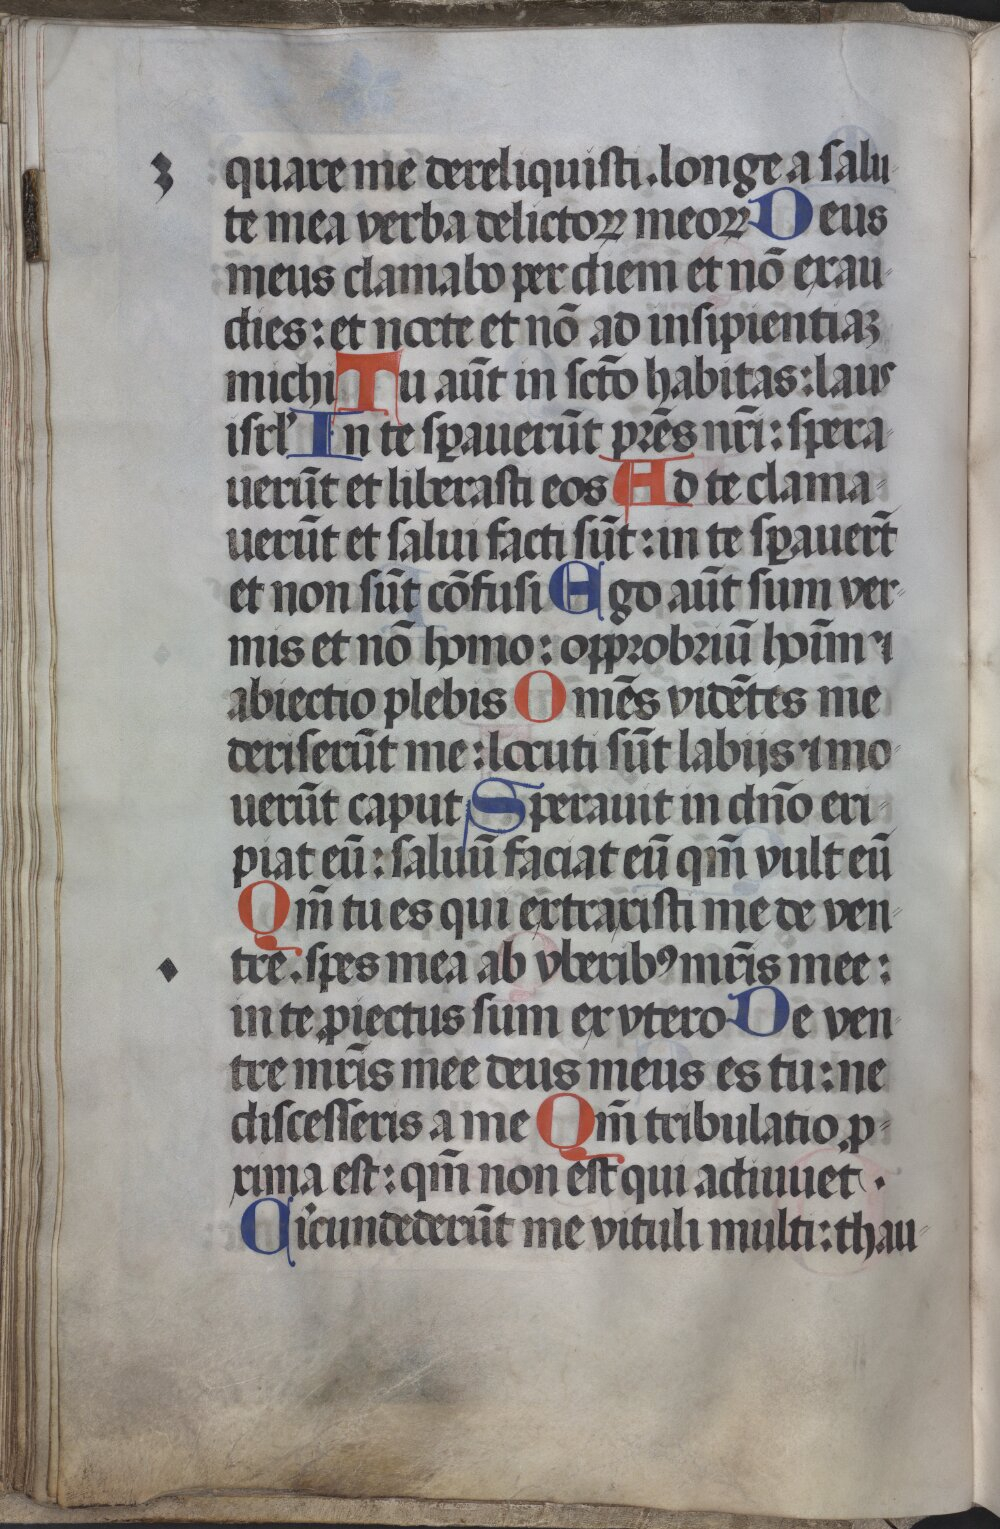 quare me dereliquisti. longe a salu-
te mea verba delictoꝝ meoꝝ Deus
meus clamabo per diem et nō exau-
dies: et nocte et nō ad insipientiaꝫ
michi Tu aūt in scto habitas: laus
isrl' In te sꝑauerūt prēs nri: spera-
uerūt et liberasti eos Ad te clama-
uerūt et salui facti sūt: in te sꝑauert̄
et non sūt cōfusi Ego aūt sum ver-
mis et nō homo: opprobriū hoīm ⁊
abiectio plebis Omēs vidētes me
deriserūt me: locuti sūt labijs ⁊ mo-
uerūt caput Sperauit in dno eri-
piat eū: saluū faciat eū qm̄ vult eū
Qm̄ tu es qui extraxisti me de ven-
tre. spes mea ab vberibꝰ mris mee:
in te ꝓiectus sum ex vtero De ven-
tre mris mee deus meus es tu: ne
discesseris a me Qm̄ tribulatio ꝓ-
xima est: qm̄ non est qui adiuuet.
Circundederūt me vituli multi: thau-